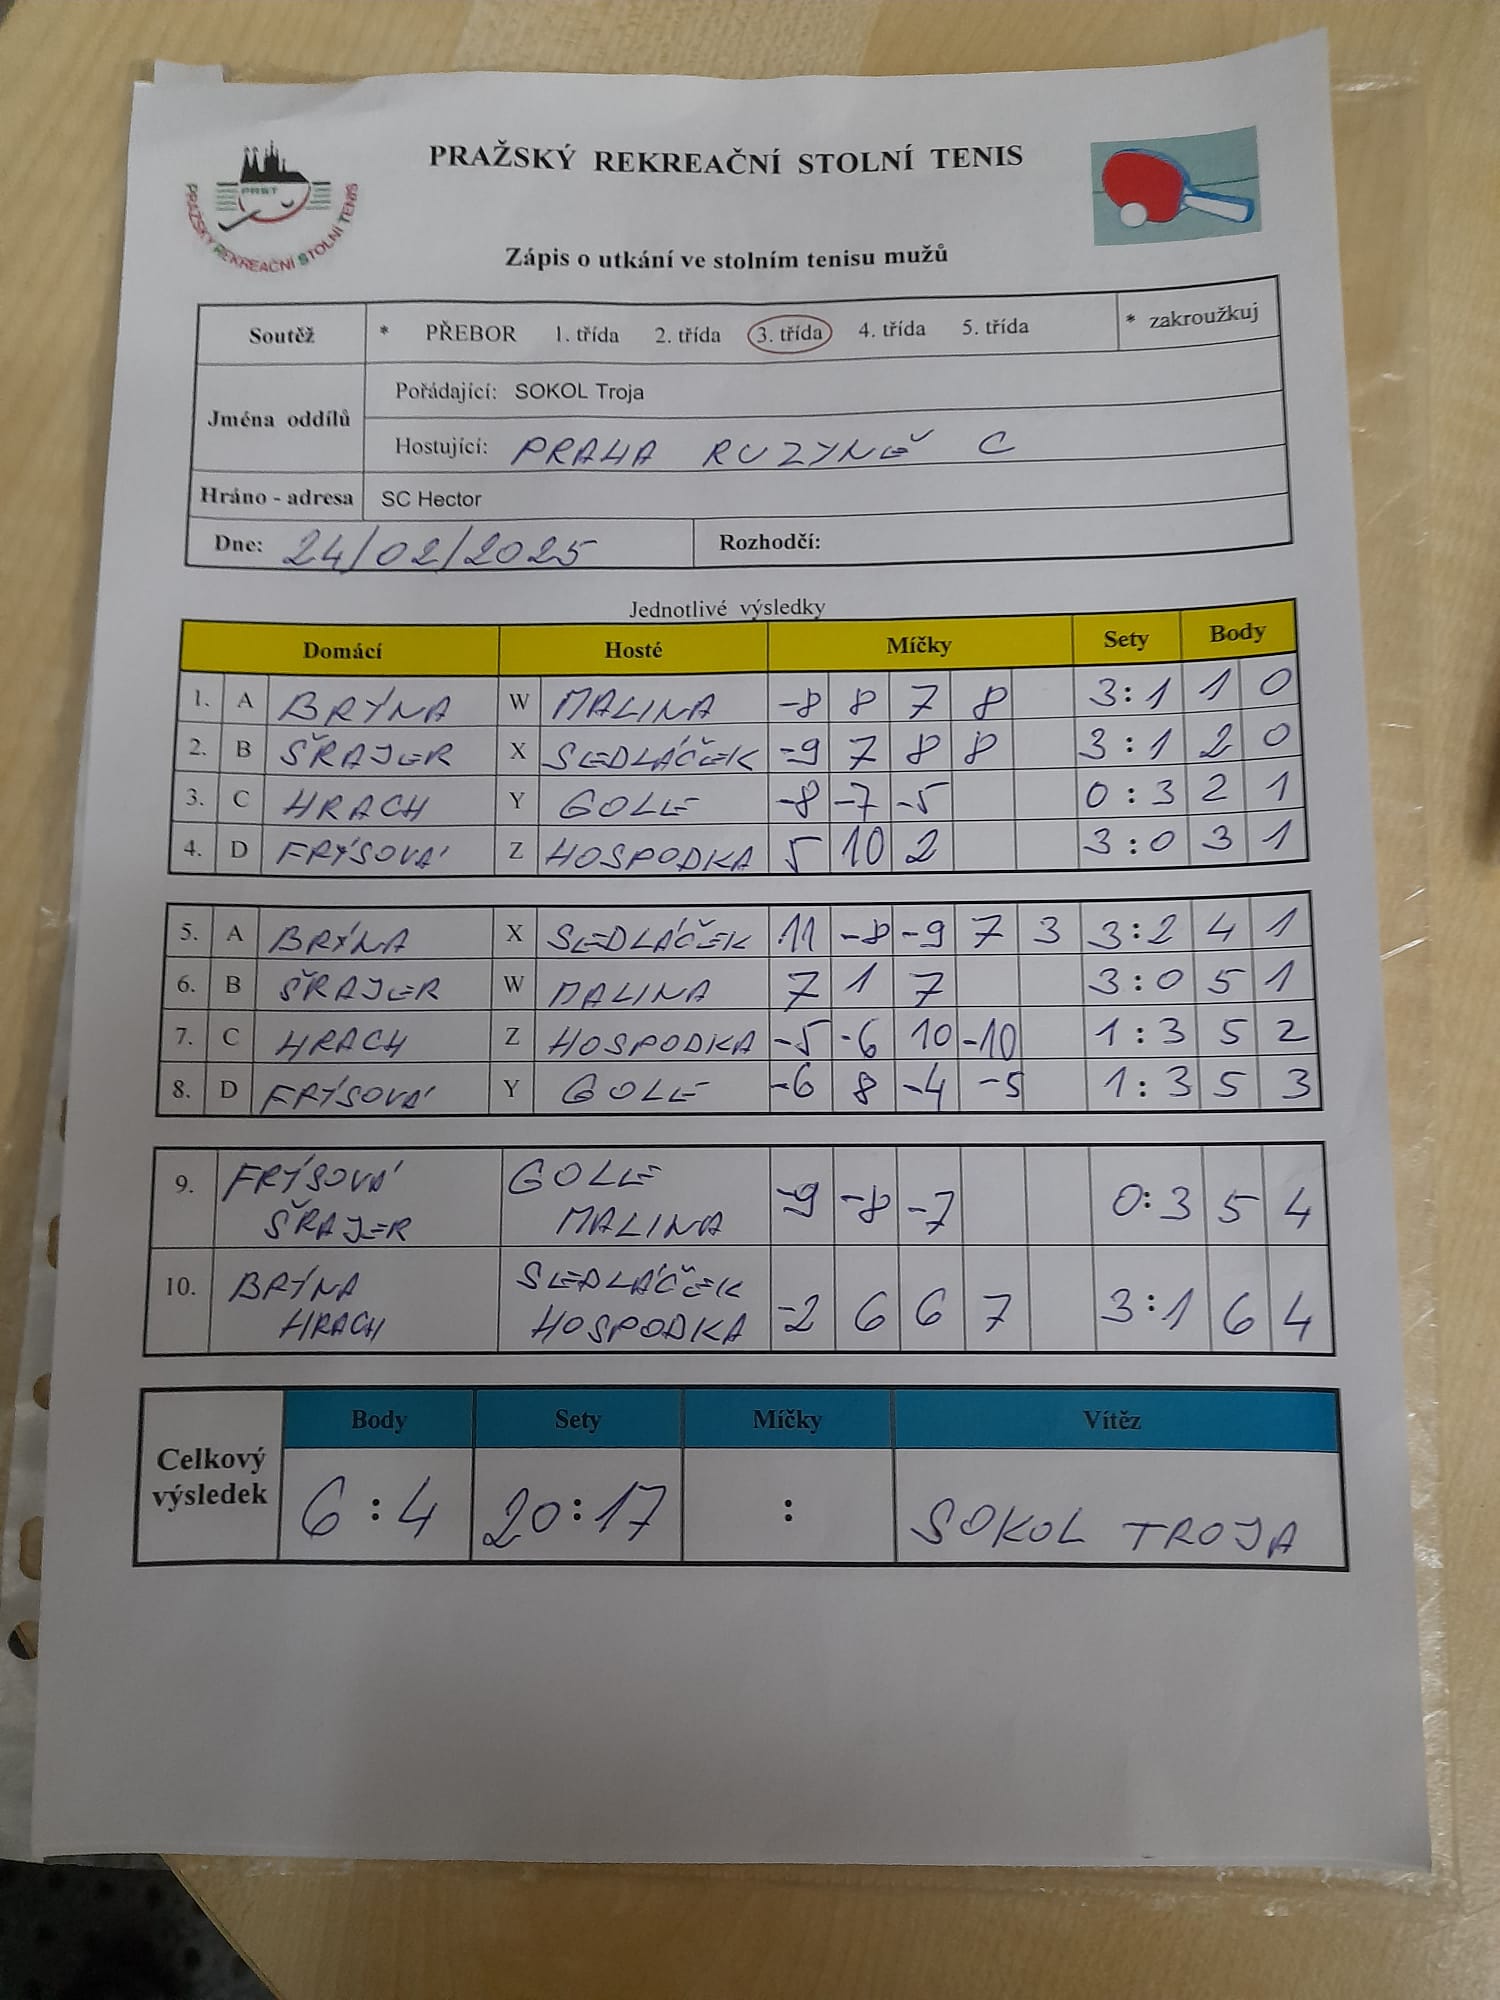 PRAŽSKÝ REKREAČNÍ STOLNÍ TENIS
PRST
PRAŽSKÝ REKREAČNÍ STOLNÍ TENIS
Zápis o utkání ve stolním tenisu mužů
Soutěž * PŘEBOR 1. třída 2. třída 3. třída 4. třída 5. třída * zakroužkuj
Jména oddílů
Pořádající: SOKOL Troja
Hostující: PRAHA RUZYNĚ C
Hráno - adresa SC Hector
Dne: 24/02/2025 Rozhodčí:
Jednotlivé výsledky
Domácí Hosté Míčky Sety Body
1. A BRÝNA W MALINA -8 8 7 8 3:1 1 0
2. B ŠRAJER X SEDLÁČEK -9 7 8 8 3:1 2 0
3. C HRACH Y GOLLE -8 -7 -5 0:3 2 1
4. D FRÝSOVÁ Z HOSPODKA 5 10 2 3:0 3 1
5. A BRÝNA X SEDLÁČEK 11 -8 -9 7 3 3:2 4 1
6. B ŠRAJER W MALINA 7 1 7 3:0 5 1
7. C HRACH Z HOSPODKA -5 -6 10 -10 1:3 5 2
8. D FRÝSOVÁ Y GOLLE -6 8 -4 -5 1:3 5 3
9. FRÝSOVÁ GOLLE -9 -8 -7 0:3 5 4
ŠRAJER MALINA
10. BRÝNA SEDLÁČEK -2 6 6 7 3:1 6 4
HRACH HOSPODKA
Celkový výsledek Body Sety Míčky Vítěz
6:4 20:17 : SOKOL TROJA